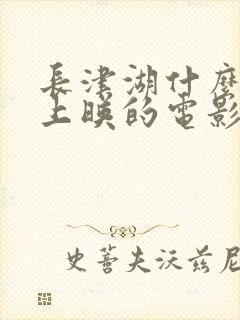 长津湖什麼
上映的電影
史蒂夫沃兹尼